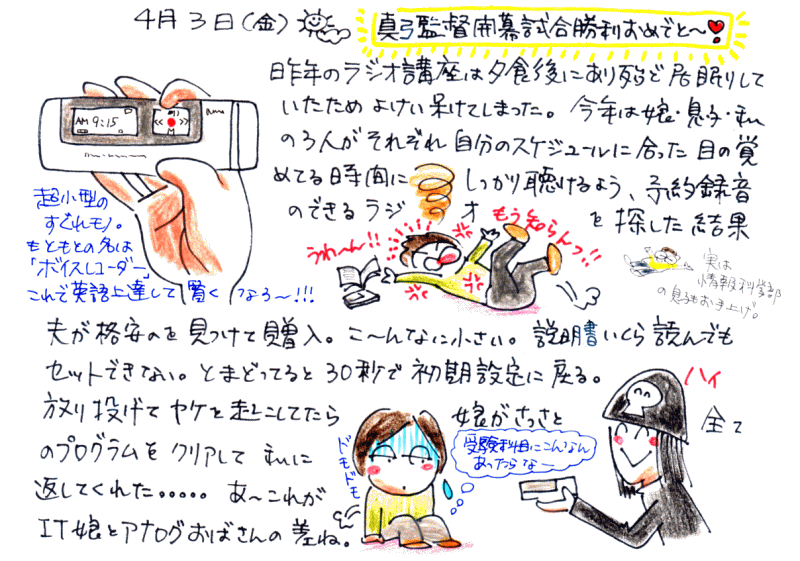 4月3日(金)
真弓監督開幕試合勝利おめでと〜
昨年のラジオ講座は夕食後にあり殆ど居眠りして
いたためよけい呆けてしまった。今年は娘・息子・私
の3人がそれぞれ自分のスケジュールに合った目の覚
めてる時間にしっかり聴けるよう、予約録音
のできるラジオを探した結果
AM 9:15
超小型の
すぐれモノ。
もともとの名は
「ボイスレコーダー」
これで英語上達して賢くなる〜!!!
うわ〜ん!!
もう知らんっ!!
実は
情報科学部
の息子もお手上げ。
夫が格安のを見つけて購入。こ〜んなに小さい。説明書いくら読んでも
セットできない。とまどってると30秒で初期設定に戻る。
放り投げてヤケを起こしてたら娘がさっさと全て
のプログラムをクリアして私に
返してくれた・・・・・あ〜これが
IT娘とアナログおばさんの差ね。
ドモドモ
受験科目にこんなん
あったらなー
ハイ